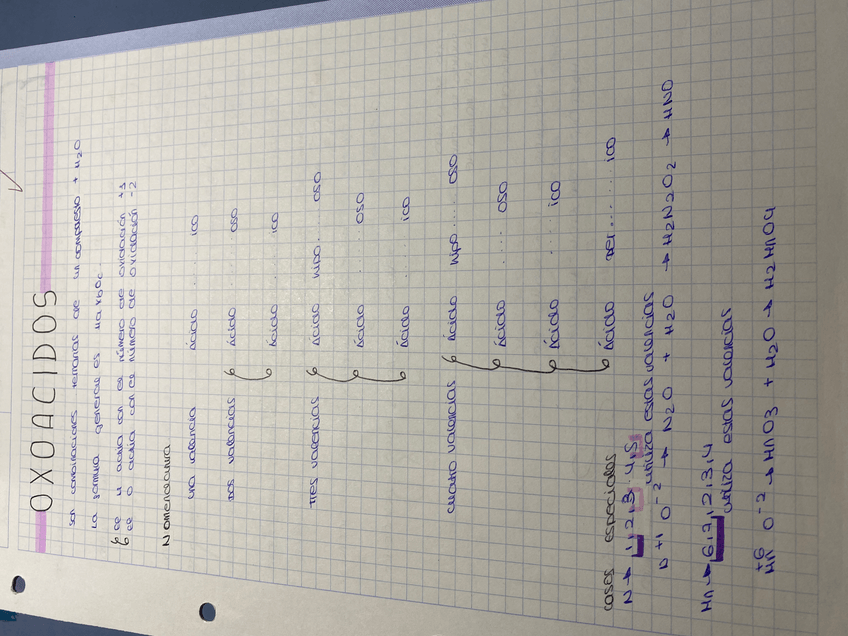 OXOACIDOS
Son combinaciones ternarias de un compuesto + H2O
La formula general es HaXbOc.
el H actua con el número de oxidación +1
el O actua con el número de oxidación -2
Nomenclatura
una valencia Ácido ... ico
Dos valencias Ácido ... oso
Ácido ... ico
Tres valencias Ácido hipo .... oso
Ácido ..... oso
Ácido ..... ico
cuatro valencias Ácido hipo ..... oso
Ácido ..... oso
Ácido ..... ico
Ácido per ..... ico
casos especiales
N → 1, 2, 3, 4, 5
utiliza estas valencias
N+1 O-2 → N2O + H2O → H2N2O2 → HNO
Mn → 6, 7, 2, 3, 4
utiliza estas valencias
+6
Mn O-2 → MnO3 + H2O → H2MnO4